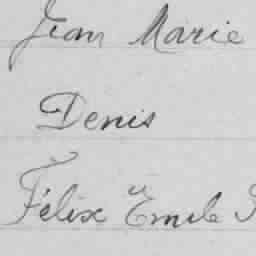 Jean Marie
Denis
Félix Emile